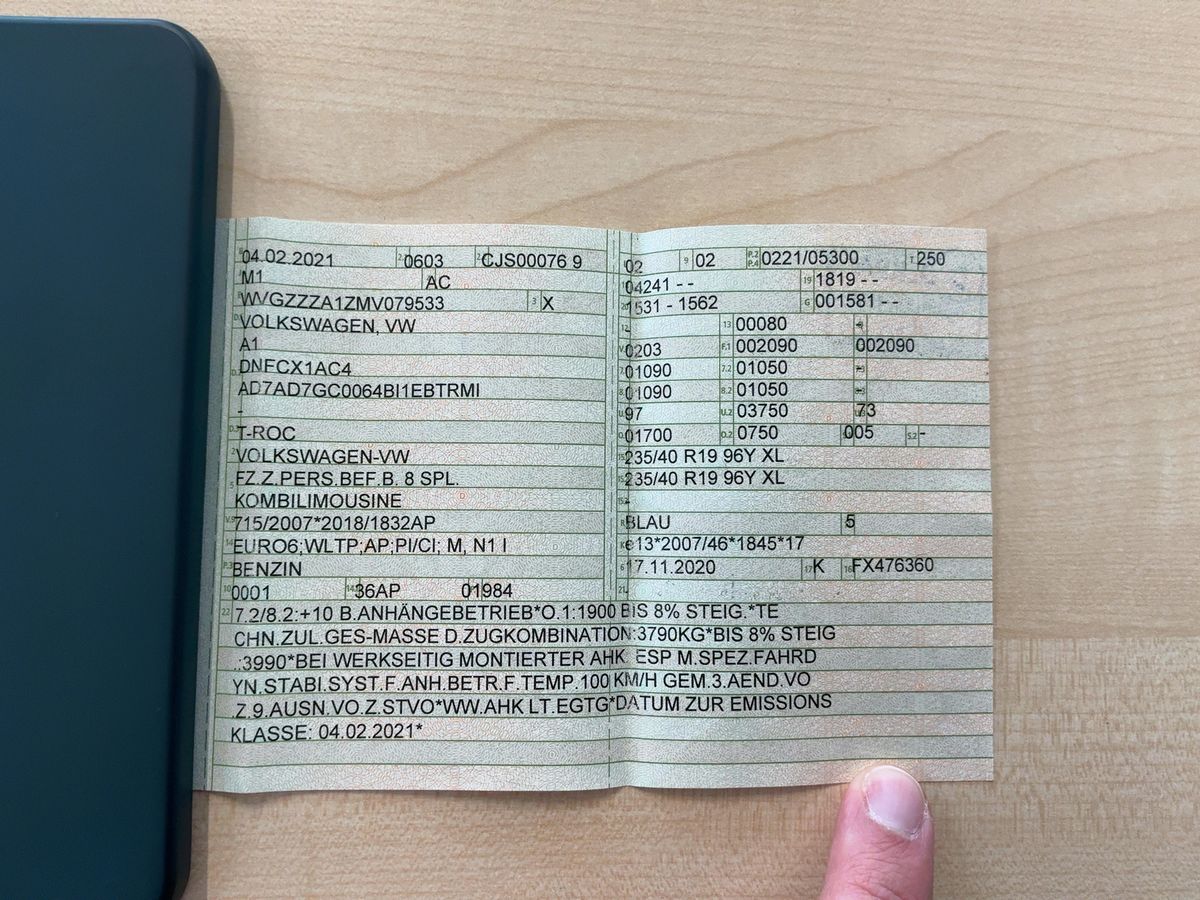 04.02.2021 0603 CJS00076 9
M1 AC
WVGZZZA1ZMV079533 X
VOLKSWAGEN, VW
A1
DNFCX1AC4
AD7AD7GC0064BI1EBTRMI
-
T-ROC
VOLKSWAGEN-VW
FZ.Z.PERS.BEF.B. 8 SPL.
KOMBILIMOUSINE
715/2007*2018/1832AP
EURO6;WLTP;AP;PI/CI; M, N1 I
BENZIN
0001 36AP 01984
02 9 02 P.2 P.4 0221/05300 T 250
04241 - - 19 1819 - -
1531 - 1562 G 001581 - -
13 00080 -
0203 F.1 002090 002090
01090 7.2 01050 -
01090 8.2 01050 -
97 U.2 03750 73
01700 O.2 0750 005 S.2 -
235/40 R19 96Y XL
235/40 R19 96Y XL
-
BLAU 5
e13*2007/46*1845*17
17.11.2020 17 K 16 FX476360
21
22 7.2/8.2:+10 B.ANHÄNGEBETRIEB*O.1:1900 BIS 8% STEIG.*TE
CHN.ZUL.GES-MASSE D.ZUGKOMBINATION:3790KG*BIS 8% STEIG
.:3990*BEI WERKSEITIG MONTIERTER AHK: ESP M.SPEZ.FAHRD
YN.STABI.SYST.F.ANH.BETR.F.TEMP.100 KM/H GEM.3.AEND.VO
.Z.9.AUSN.VO.Z.STVO*WW.AHK LT.EGTG*DATUM ZUR EMISSIONS
KLASSE: 04.02.2021*